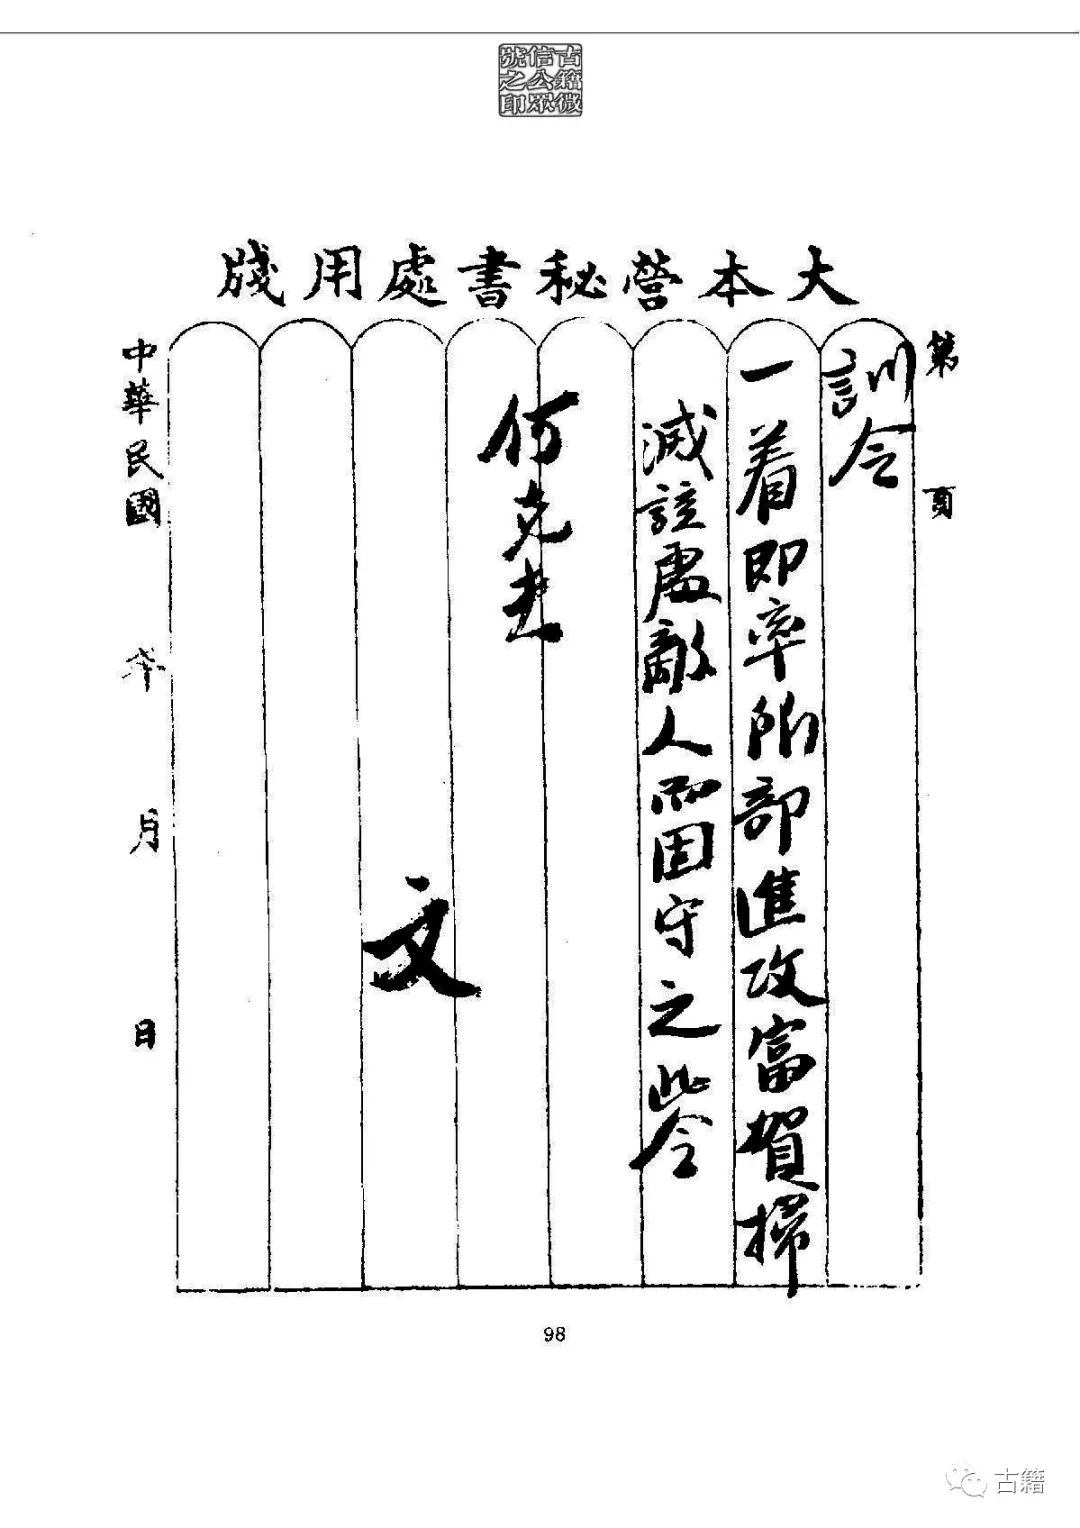 古籍微
信公眾
號之印
大本營秘書處用牋
第 頁
訓令
一着即率所部進攻富賀掃
滅該處敵人而固守之此令
何克夫
文
中華民國 年 月 日
98
古籍